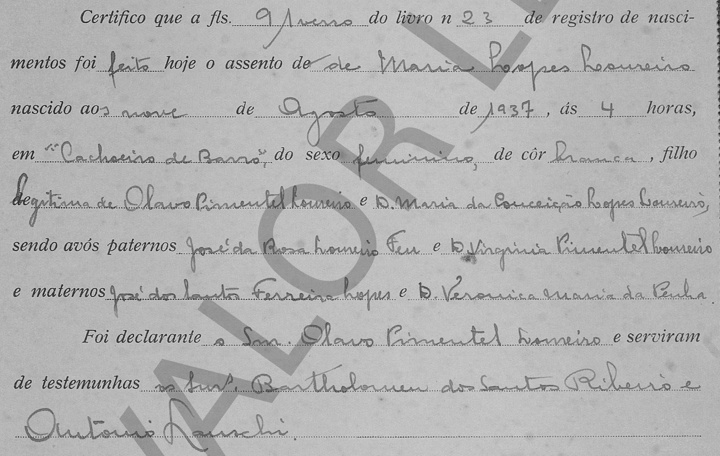 Certifico que a fls. 9 / verso do livro n 23 de registro de nasci-
mentos foi feito hoje o assento de de Maria Lopes Loureiro
nascido aos nove de Agosto de 1937, ás 4 horas,
em "Cachoeiro de Barro", do sexo feminino, de côr branca, filho
legitima de Olavo Pimentel Loureiro e D. Maria da Conceição Lopes Loureiro,
sendo avós paternos José da Rosa Loureiro e D. Virginia Pimentel Loureiro
e maternos José dos Santos Ferreira Lopes e D. Veronica Maria da Penha.
Foi declarante o Snr. Olavo Pimentel Loureiro e serviram
de testemunhas os Snrs. Bartholomeu dos Santos Ribeiro e
Antonio
VALOR LE